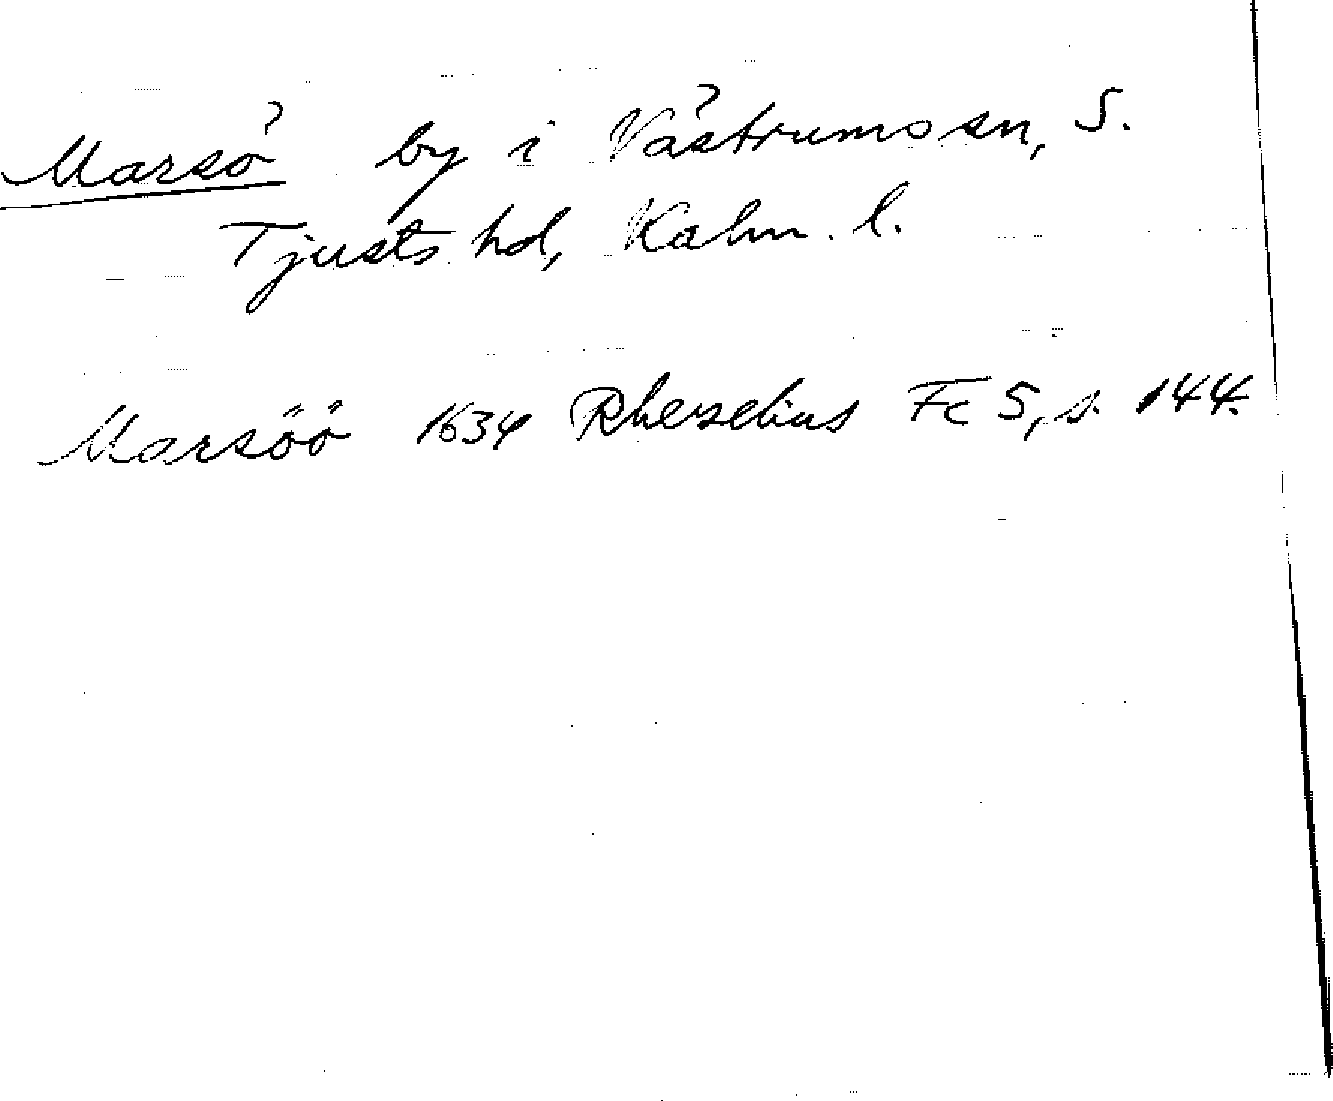 Marsö by i Västrums sn, S.
Tjusts hd, Kalm. l.
Marsöö 1634 Rhezelius Fc 5, s. 144.